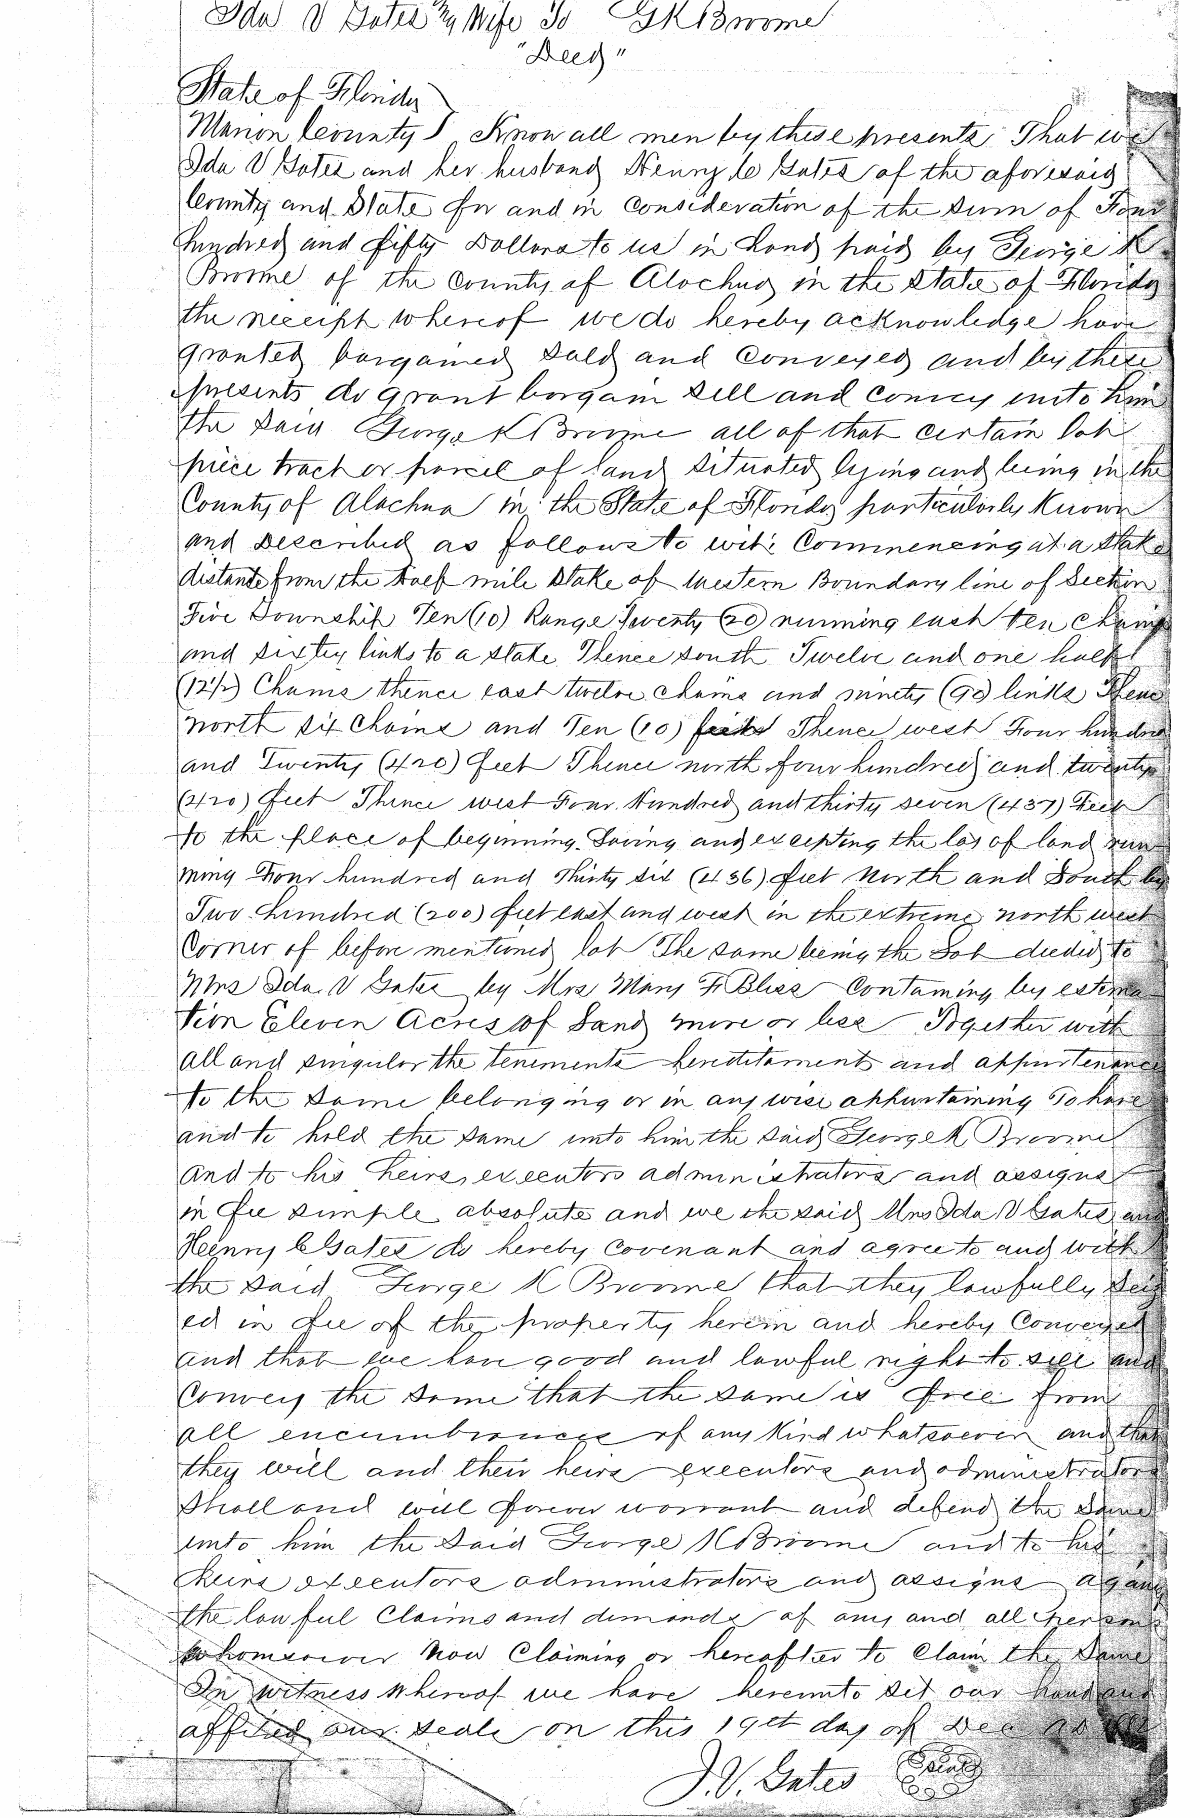 Ida V Gates & Wife To GK Broome
"Deed"
State of Florida
Marion County } Know all men by these presents That we
Ida V Gates and her husband Henry C Gates of the aforesaid
County and State for and in consideration of the sum of Four
hundred and fifty Dollars to us in hand paid by George K
Broome of the County of Alachua in the State of Florida
the receipt whereof we do hereby acknowledge have
granted bargained sold and conveyed and by these
presents do grant bargain sell and convey unto him
the said George K Broome all of that certain lot
piece tract or parcel of land situated lying and being in the
County of Alachua in the State of Florida particularly Known
and Described as follows to wit: Commencing at a stake
distante from the half mile stake of western Boundary line of Section
Five Township Ten (10) Range Twenty (20) running east ten chains
and sixty links to a stake Thence south Twelve and one half
(12½) Chains thence east twelve chains and ninety (90) links Thence
north six Chains and Ten (10) feet Thence west Four hundred
and Twenty (420) feet Thence north four hundred and twenty
(420) feet Thence west Four Hundred and thirty seven (437) Feet
to the place of beginning. Saving and excepting the lot of land run
ning Four hundred and Thirty six (436) feet North and South by
Two hundred (200) feet east and west in the extreme north west
Corner of before mentioned lot The same being the Lot deeded to
Mrs Ida V Gates by Mrs Mary F Bliss Containing by estima
tion Eleven Acres of Land more or less Together with
all and singular the tenements hereditament and appurtenance
to the same belonging or in any wise appurtaining To have
and to hold the same unto him the said George K Broome
and to his heirs, executors administrators and assigns
in fee simple absolute and we the said Mrs Ida V Gates and
Heenry C Gates do hereby covenant and agree to and with
the said George K Broome that they lawfully seiz
ed in fee of the property herein and hereby Conveyed
and that we have good and lawful right to sell and
Convey the same that the same is free from
all encumbrances of any Kind whatsoever and that
they will and their heirs executors and administrators
shall and will forever warrant and defend the same
unto him the said George K Broome and to his
heirs executors administrators and assigns against
the lawful Claims and demands of any and all persons
whomsoever now Claiming or hereafter to Claim the same
In witness whereof we have hereunto set our hand and
affixed our seals on this 19th day of Dec AD
I.V. Gates Seal